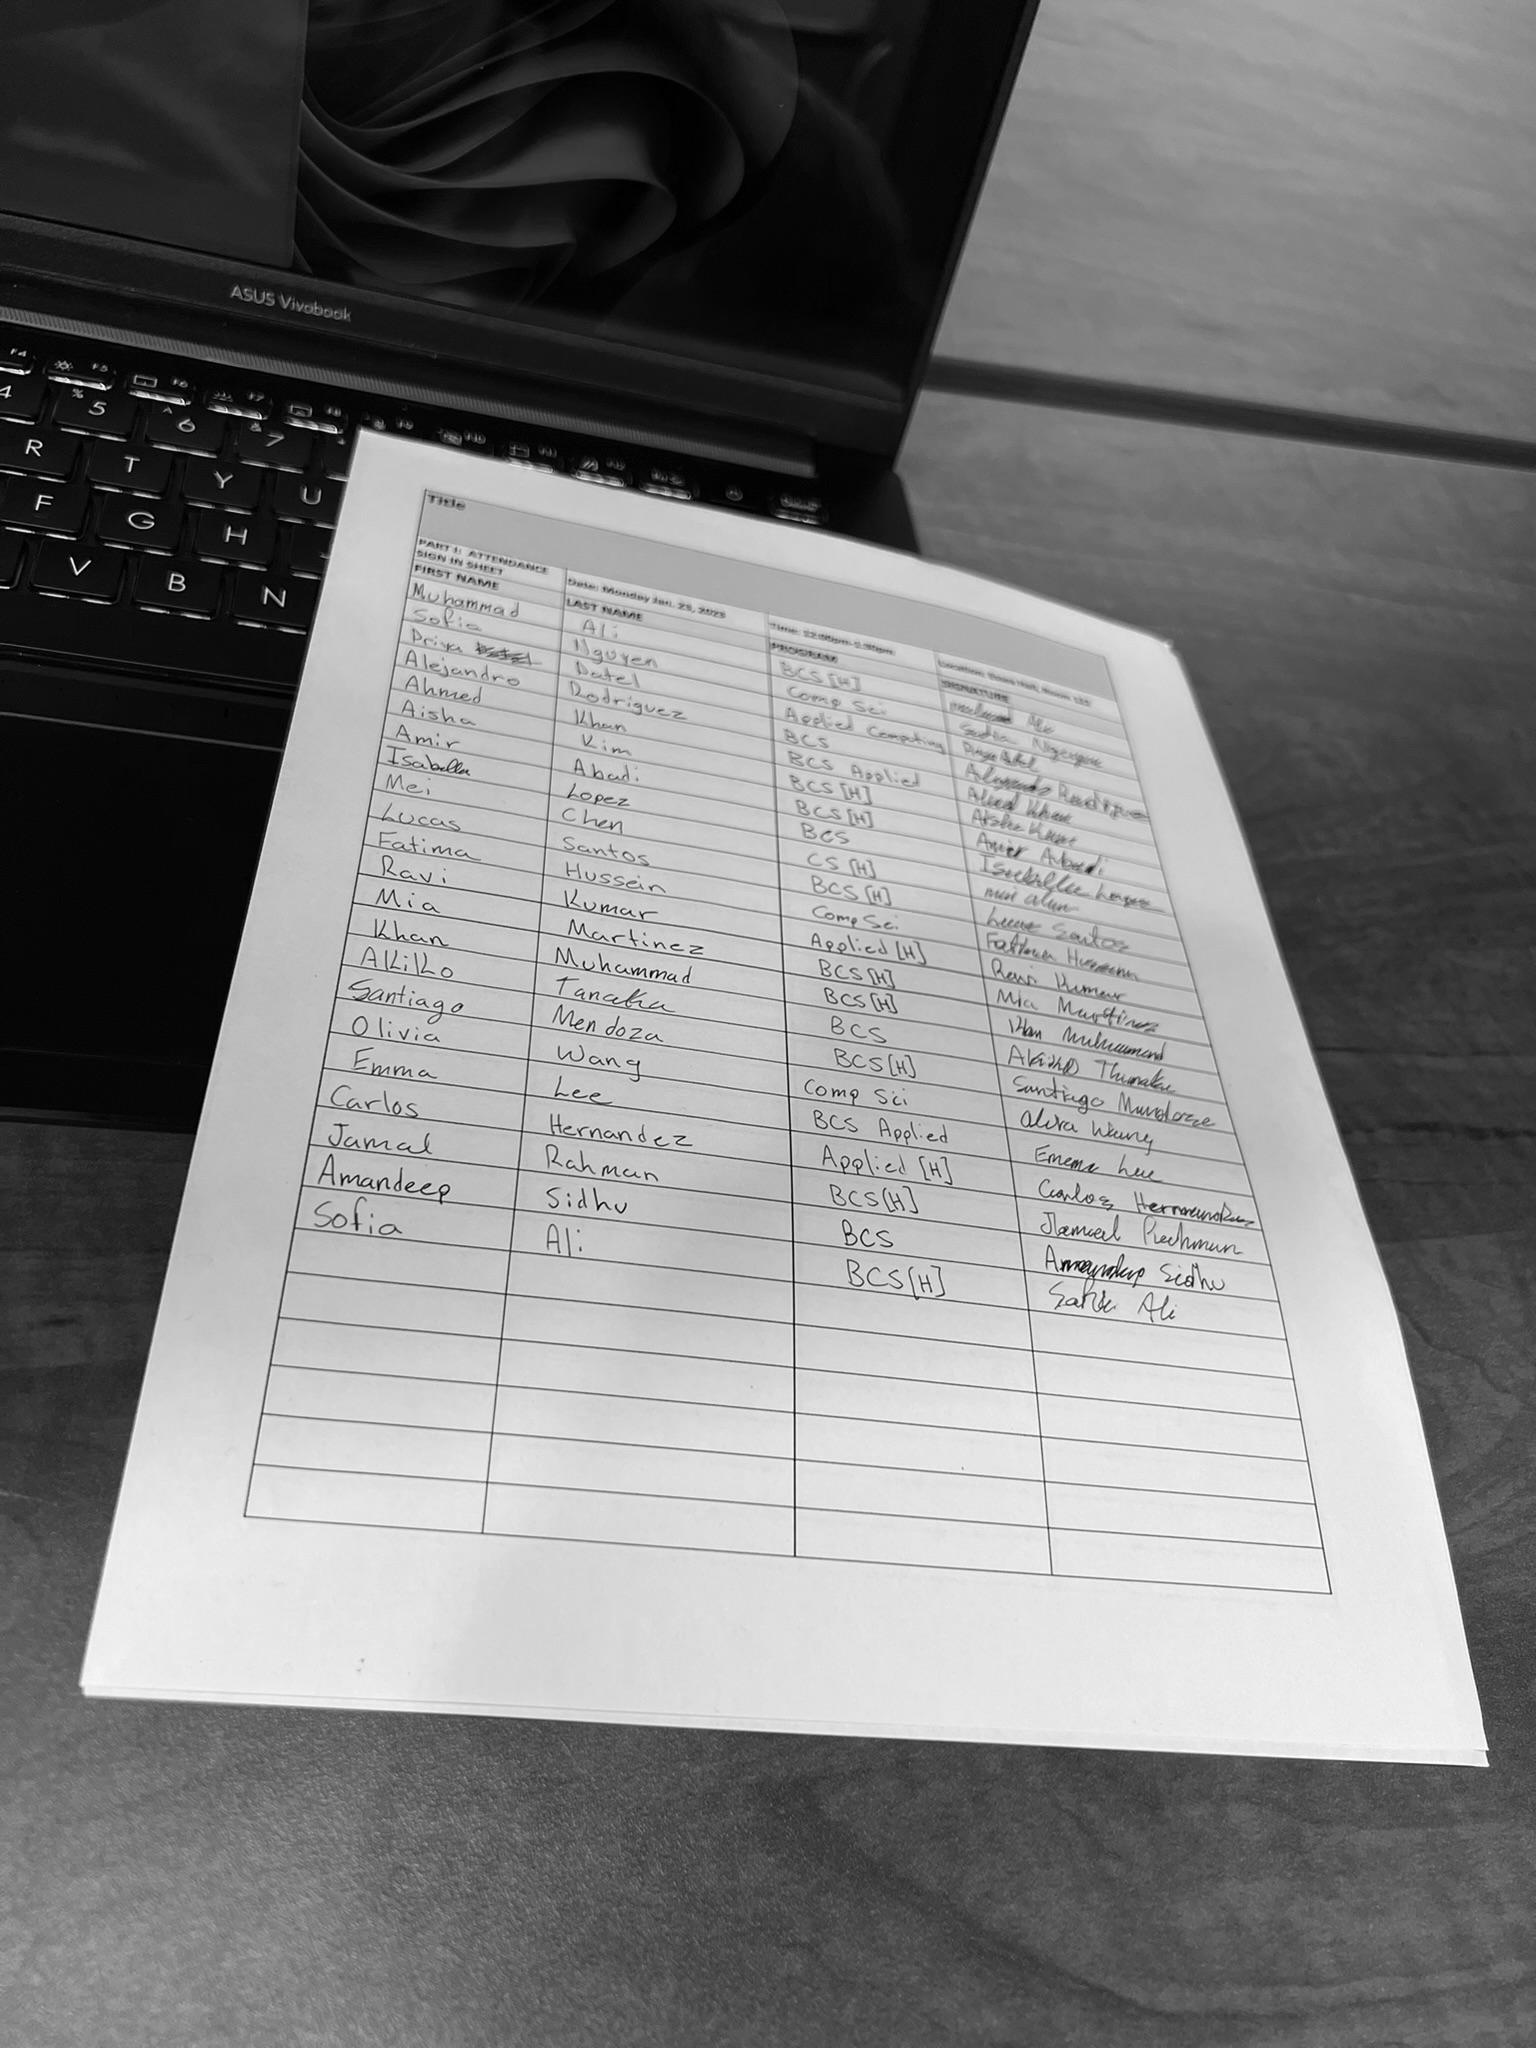 ASUS Vivobook
F4 F5 F6 F7
4 % 5 ^ 6 & 7
R T Y U
F G H
V B N
Title
PART I: ATTENDANCE SIGN IN SHEET Date: Monday Jan. 2023
FIRST NAME LAST NAME PROGRAM SIGNATURE
Muhammad Ali BCS [H] Ali
Sofia Nguyen Comp Sci Sofia Nguyen
Priya Patel Applied Computing
Alejandro Rodriguez BCS Alejandro Rodriguez
Ahmed Khan BCS Applied Ahmed Khan
Aisha Kim BCS [H] Aisha
Amir Abadi BCS [H] Amir Abadi
Isabella Lopez BCS Isabella Lopez
Mei Chen CS [H] mei chen
Lucas Santos BCS [H] Lucas Santos
Fatima Hussein Comp Sci Fatima Hussein
Ravi Kumar Applied [H] Ravi Kumar
Mia Martinez BCS [H] Mia Martinez
Khan Muhammad BCS [H] Khan Muhammad
Akiko Tanaka BCS Akiko Tanaka
Santiago Mendoza BCS [H] Santiago Mendoza
Olivia Wang Comp Sci Olivia Wang
Emma Lee BCS Applied Emma Lee
Carlos Hernandez Applied [H] Carlos Hernandez
Jamal Rahman BCS [H] Jamal Rahman
Amandeep Sidhu BCS Amandeep Sidhu
Sofia Ali BCS [H] Sofia Ali